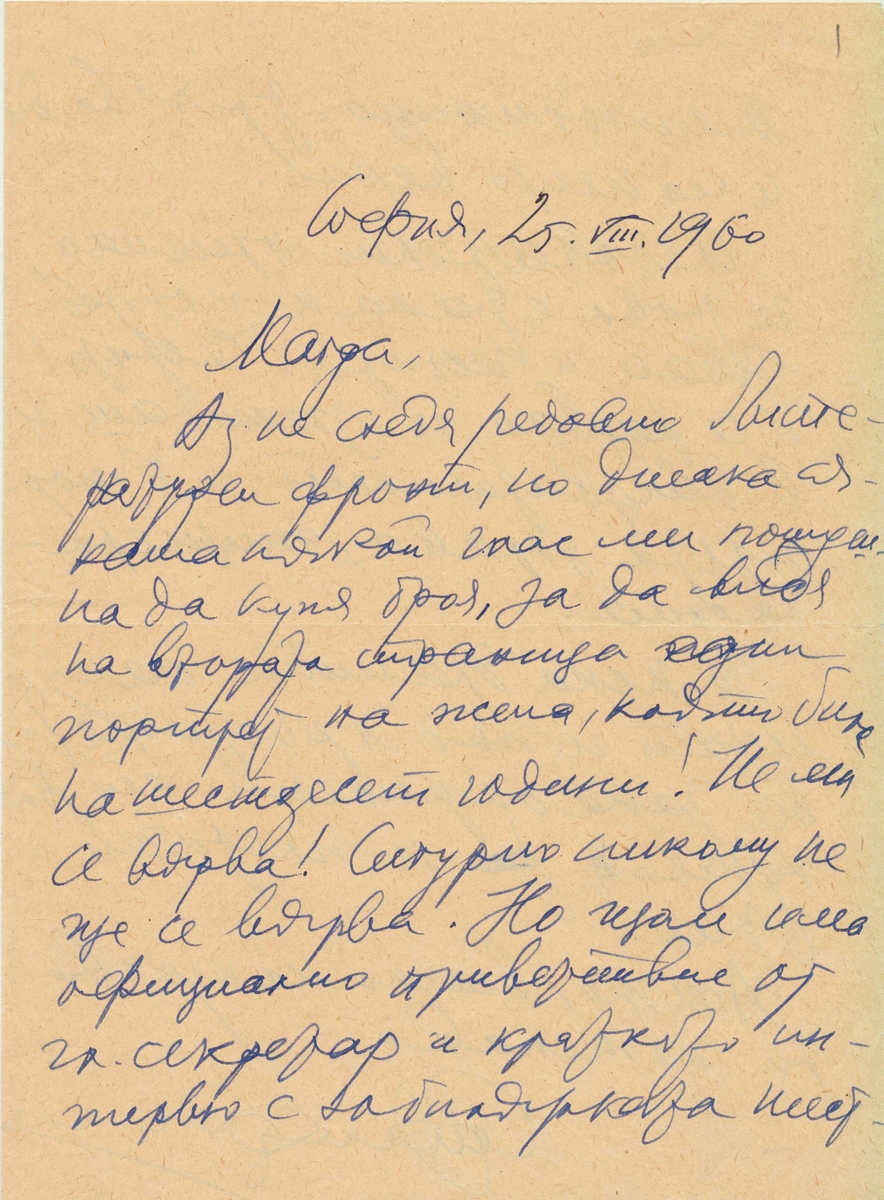 1
София, 25. VIII. 1960
Магда,
Аз не следя редовно Лите-
ратурен фронт, но днеска ся-
каша някой глас ми пошуш-
на да купя броя, за да видя
на втората страница един
портрет на жена, която била
на шестдесет години! Не ми
се вярва! Сигурно никому не
ще се вярва. Но щом има
официално приветствие от
гл. секретар и краткото ин-
тервю с юбилярката шест-